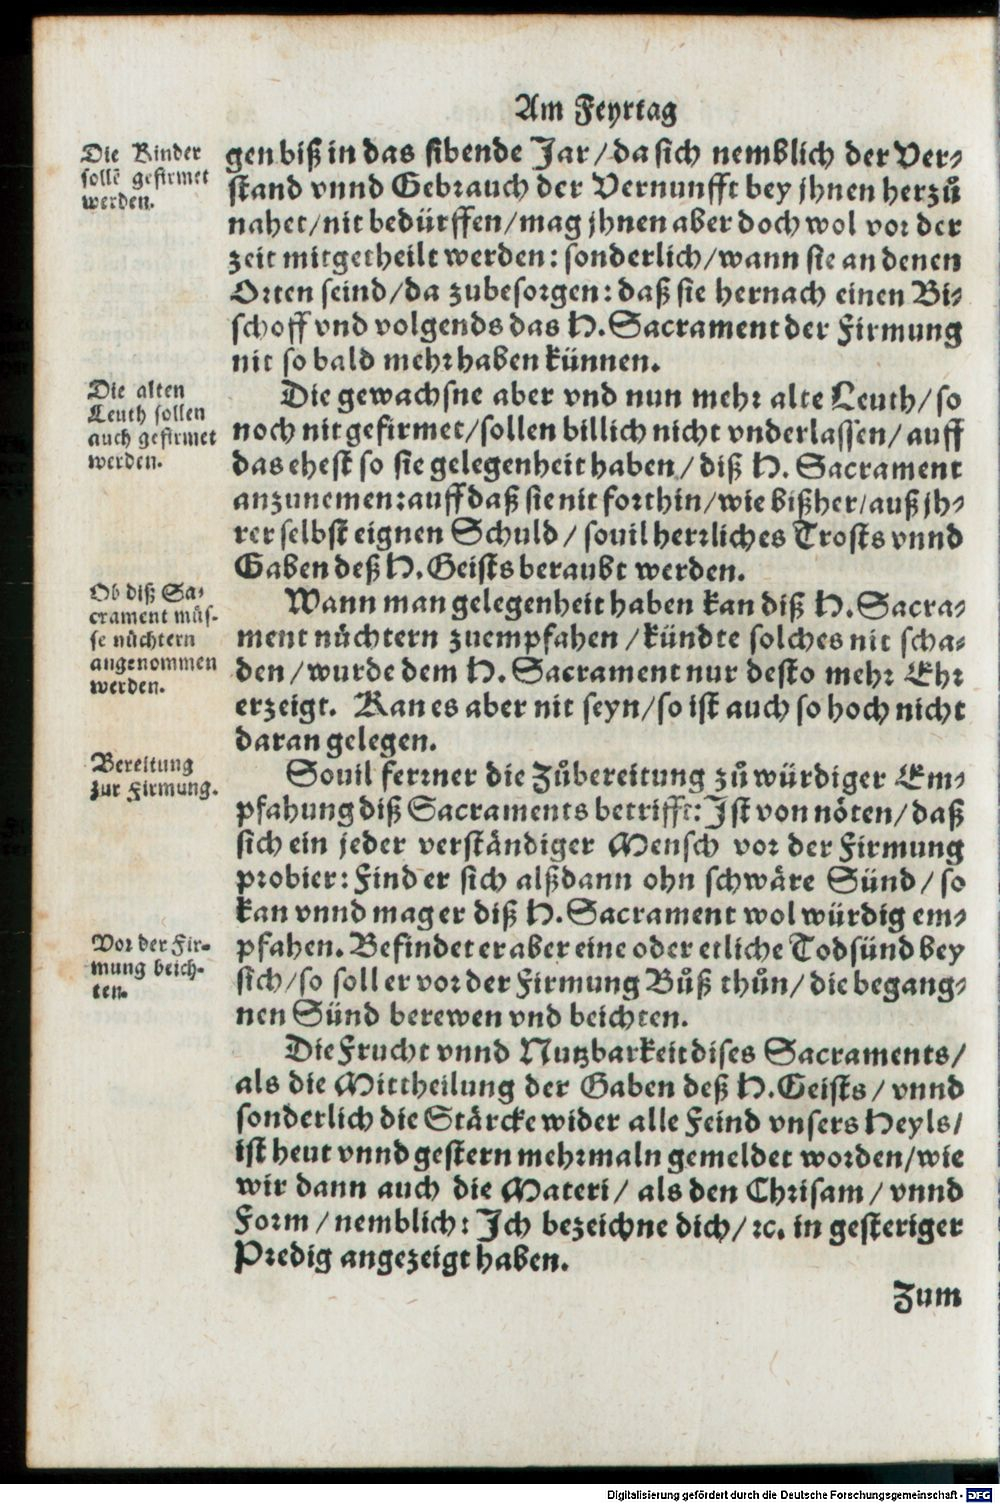 Am Feyrtag
Die Kinder
sollē gefirmet
werden.
gen biß in das sibende Jar / da sich nemblich der Ver-
stand vnnd Gebrauch der Vernunfft bey jhnen herzů
nahet / nit bedürffen / mag jhnen aber doch wol vor der
zeit mitgetheilt werden: sonderlich / wann sie an denen
Orten seind / da zubesorgen: daß sie hernach einen Bi-
schoff vnd volgends das H. Sacrament der Firmung
nit so bald mehr haben künnen.
Die alten
Leuth sollen
auch gefirmet
werden.
Die gewachsne aber vnd nun mehr alte Leuth / so
noch nit gefirmet / sollen billich nicht vnderlassen / auff
das ehest so sie gelegenheit haben / diß H. Sacrament
anzunemen: auff daß sie nit forthin / wie bißher / auß jh-
rer selbst eignen Schuld / souil herrliches Trosts vnnd
Gaben deß H. Geists beraubt werden.
Ob diß Sa-
crament müs-
se nüchtern
angenommen
werden.
Wann man gelegenheit haben kan diß H. Sacra-
ment nüchtern zuempfahen / kündte solches nit scha-
den / wurde dem H. Sacrament nur desto mehr Ehr
erzeigt. Kan es aber nit seyn / so ist auch so hoch nicht
daran gelegen.
Bereitung
zur Firmung.
Souil ferrner die Zůbereitung zů würdiger Em-
pfahung diß Sacraments betrifft: Ist von nöten / daß
sich ein jeder verständiger Mensch vor der Firmung
probier: Find er sich alßdann ohn schwäre Sünd / so
kan vnnd mag er diß H. Sacrament wol würdig em-
Vor der Fir-
mung beich-
ten.
pfahen. Befindet er aber eine oder etliche Todsünd bey
sich / so soll er vor der Firmung Bůß thůn / die begang-
nen Sünd berewen vnd beichten.
Die Frucht vnnd Nutzbarkeit dises Sacraments /
als die Mittheilung der Gaben deß H. Geists / vnnd
sonderlich die Stärcke wider alle Feind vnsers Heyls /
ist heut vnnd gestern mehrmaln gemeldet worden / wie
wir dann auch die Materi / als den Chrisam / vnnd
Form / nemblich: Ich bezeichne dich / ꝛc. in gesteriger
Predig angezeigt haben.
Zum
Digitalisierung gefördert durch die Deutsche Forschungsgemeinschaft - DFG